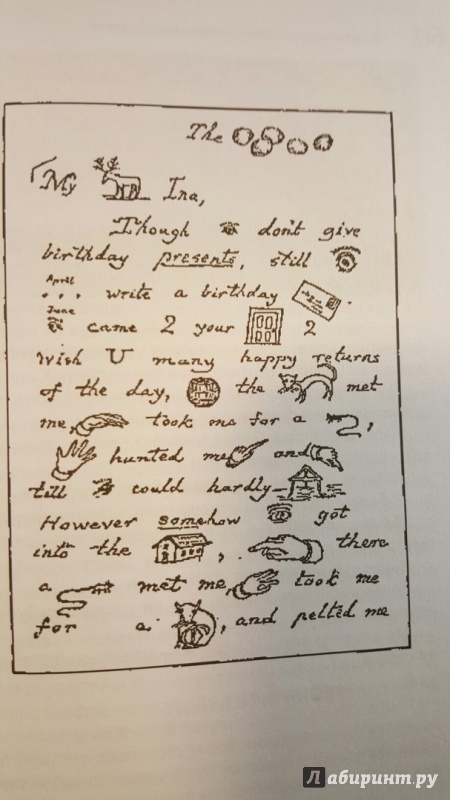 The
My Ina,
Though don't give
birthday presents, still
April
... write a birthday .
June
came 2 your 2
wish U many happy returns
of the day, the met
me, took me for a ,
hunted me and
till could hardly
However somehow got
into the , there
a met me, took me
for a , and pelted me
Лабиринт.ру